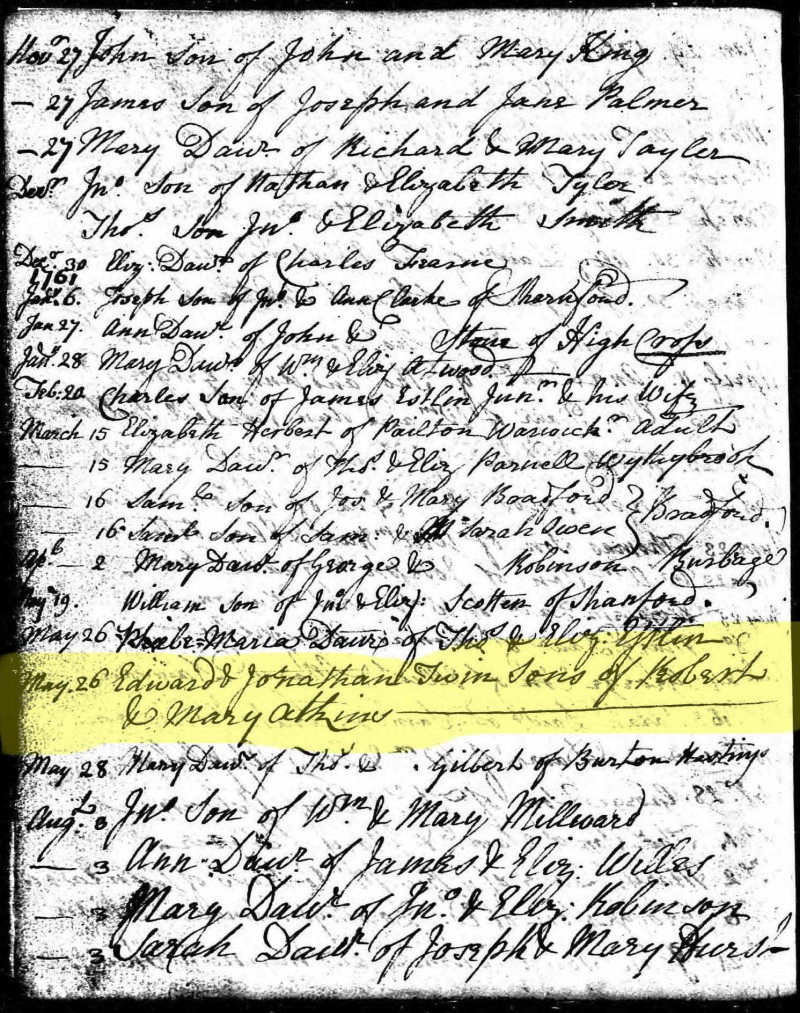 Novr 27 John Son of John and Mary King
— 27 James Son of Joseph and Jane Palmer
— 27 Mary Dawr. of Richard & Mary Tayler
Decr. Jno. Son of Nathan & Elizabeth Tyler
Thos. Son Jno. & Elizabeth Smith
Decr. 30 Eliz: Dawr. of Charles Fearne
1761
Jan. 6. Joseph Son of Jno. & Ann Clarke of Sharnford.
Jan 27. Ann Dawr. of John & Stone of High Cross
Jan. 28 Mary Dawr. of Wm. & Eliz Atwood
Feb: 20 Charles Son of James Estlin Junr. & his Wife
March 15 Elizabeth Herbert of Pailton Warwick. Adult
— 15 Mary Dawr. of Thos. & Eliz Parnell Wythybrook
— 16 Saml. Son of Jos. & Mary Bradford } Bradford.
— 16 Saml. Son of Sam. & Sarah Owen
Apl — 2 Mary Dawr. of George & Robinson Burbage
May 19. William Son of Jno. & Eliz: Scotten of Sharnford.
May 26 Phebe-Maria Dawr. of Thos. & Eliz: Estlin
May. 26 Edward & Jonathan Twin Sons of Robert
& Mary Atkins
May 28 Mary Dawr. of Thos. & Gilbert of Burton Hastings
Augt. 3 Jno. Son of Wm. & Mary Millward
— 3 Ann Dawr. of James & Eliz: Wides
— 3 Mary Dawr. of Jno. & Eliz: Robinson
— 3 Sarah Dawr. of Joseph & Mary Hurst